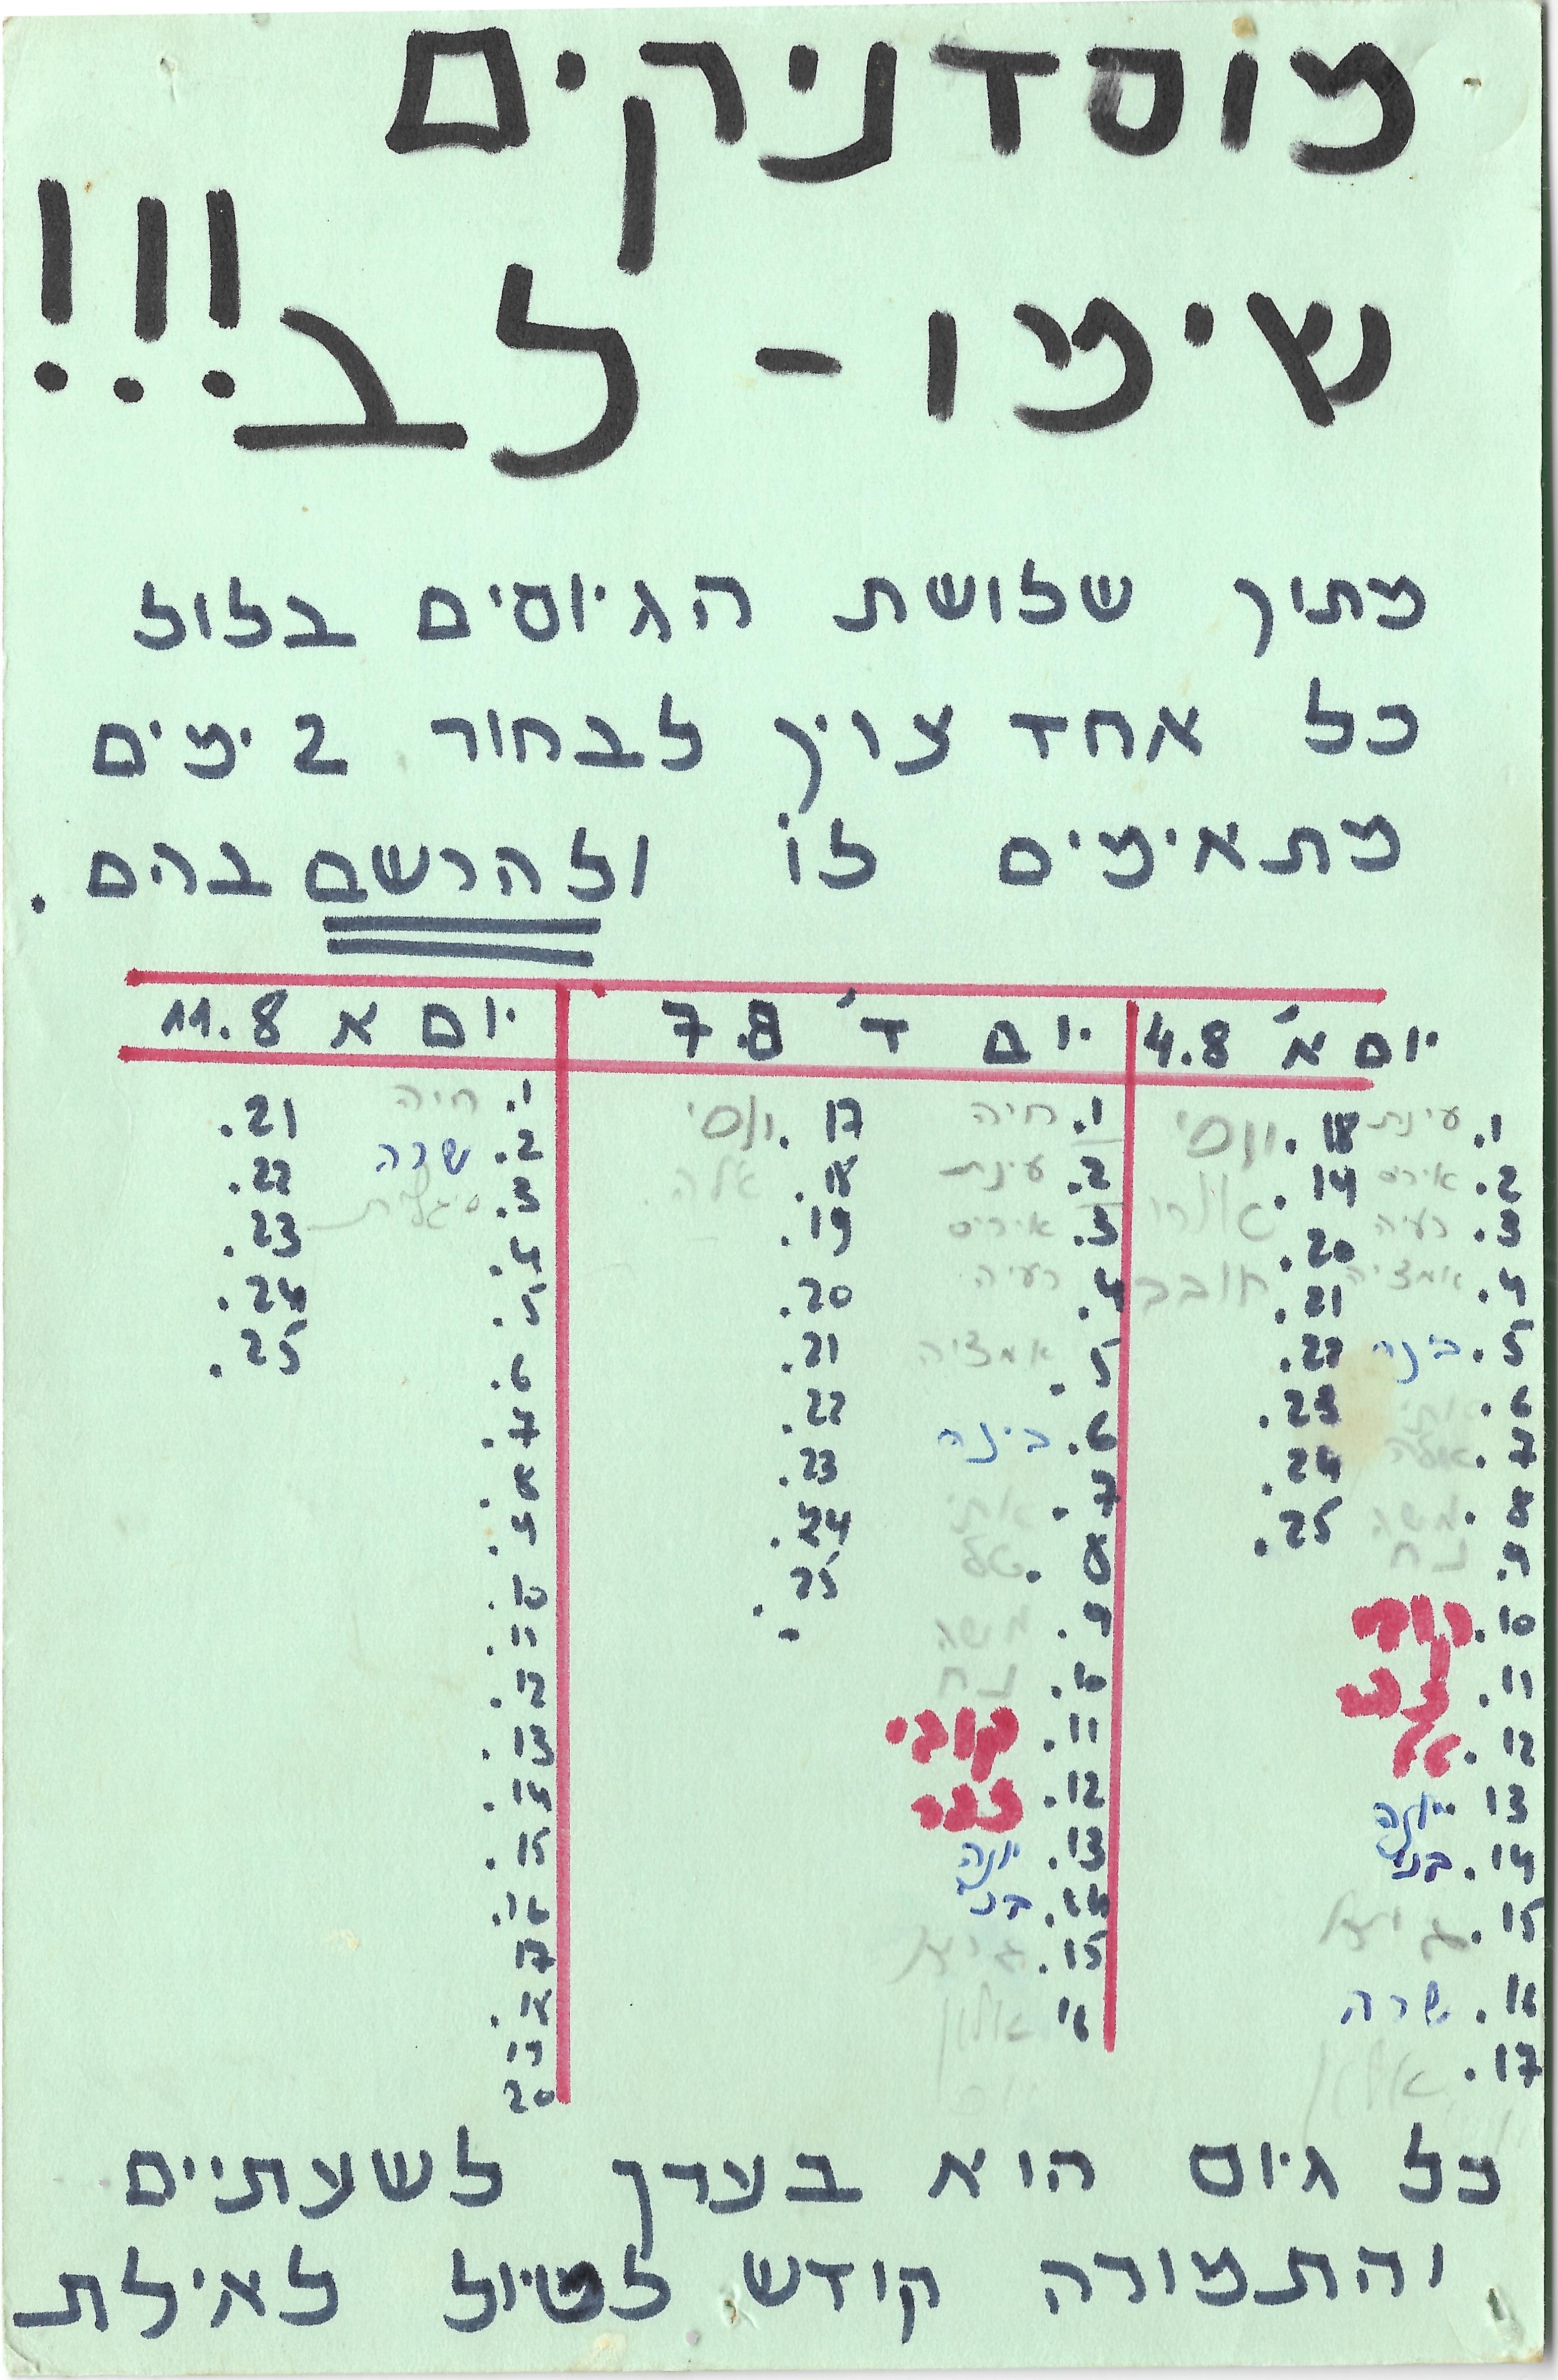 מוסדניקים
שימו - לב!!!
מתוך שלושת הגיוסים בלול
כל אחד צריך לבחור 2 ימים
מתאימים לו ולהרשם בהם.
יום א' 4.8
1. עינת
2. איריס
3. רעיה
4. אמציה
5. בינה
6. אתי
7. אלה
8. משה
9. נח
10.
11.
12.
13. יונה
14. בני
15.
16. שרה
17. אילון
18. יוסי
19.
20. חובב
21.
22.
23.
24.
25.
יום ד' 7.8
1. חיה
2. עינת
3. איריס
4. רעיה
5. אמציה
6. בינה
7. אתי
8. טל
9. משה
10. נח
11. קובי
12.
13. יונה
14. בני
15.
16 אילון
17. יוסי
18. אלה
19.
20.
21.
22.
23.
24.
25.
יום א 11.8
1. חיה
2. שרה
3. סיגלית
4.
5.
6.
7.
8.
9.
10.
11.
12.
13.
14.
15.
16.
17
18.
19
20
21.
22.
23.
24.
25.
כל גיוס הוא בערך לשעתיים
והתמורה קודש לטיול לאילת